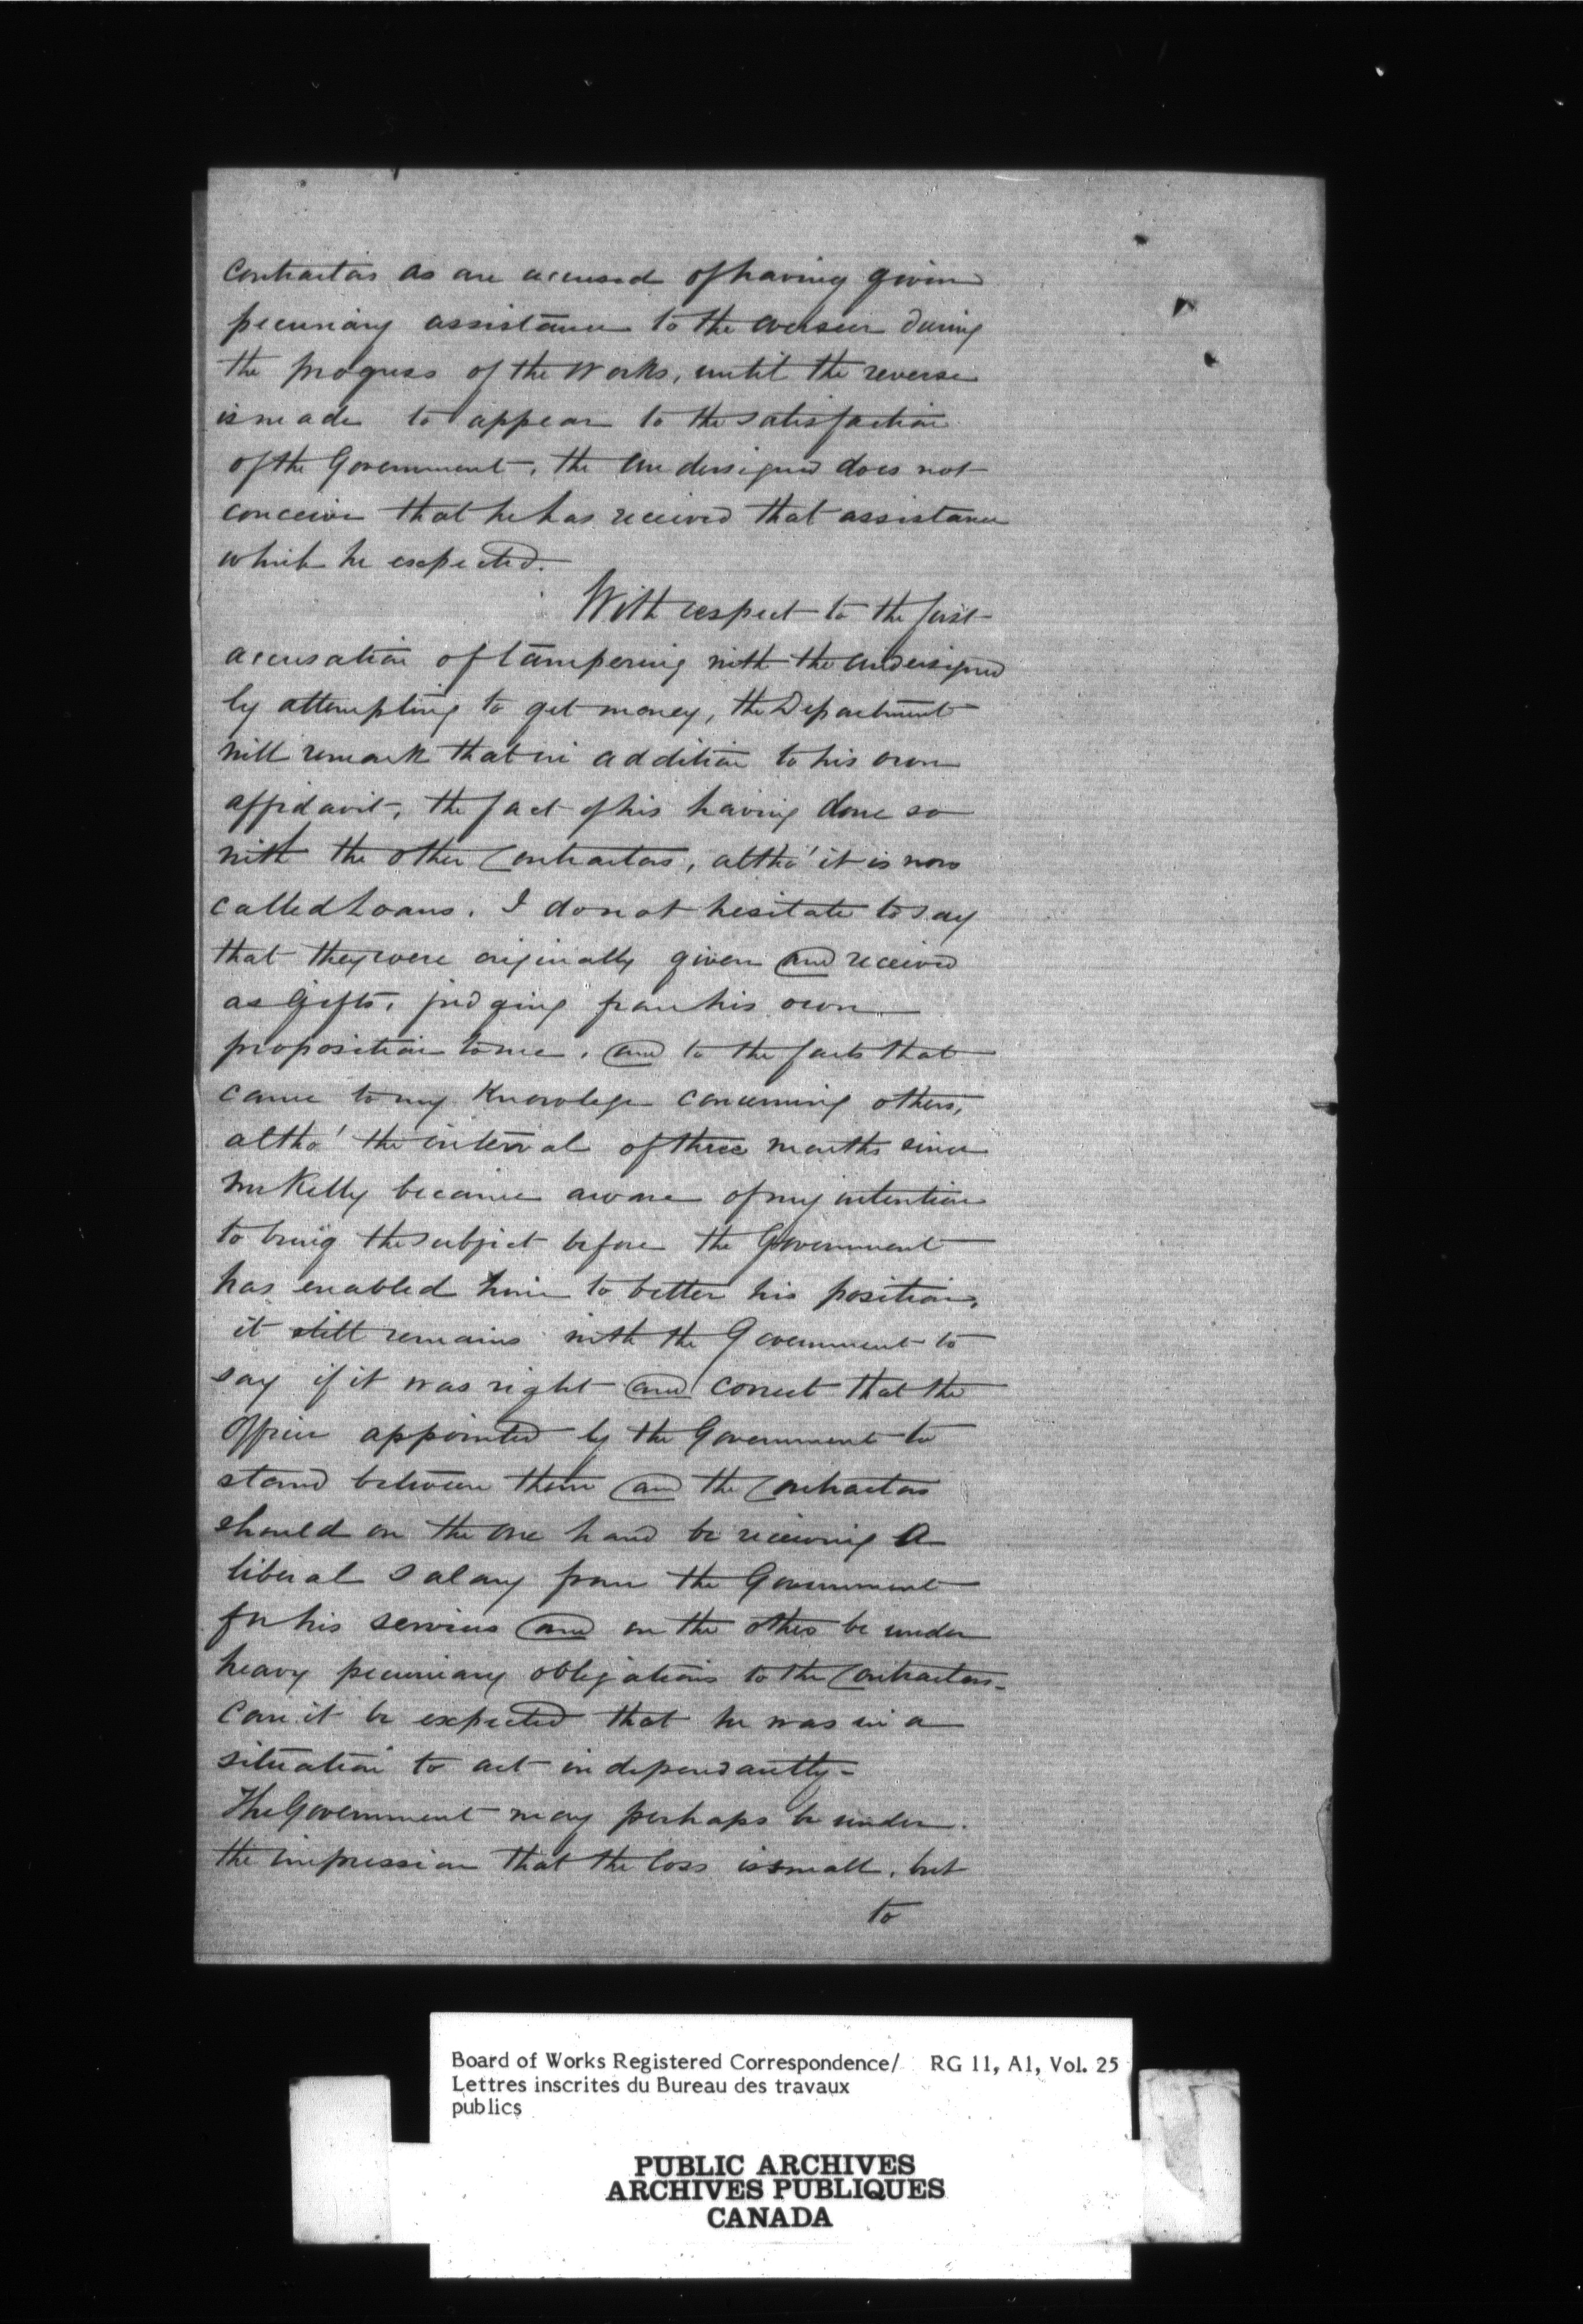 Contractors as are accused of having given
pecuniary assistance to the overseer during
the progress of the Works, until the reverse
is made to appear to the satisfaction
of the Government, the undersigned does not
conceive that he has received that assistance
which he expected.
With respect to the first
accusation of tampering with the undersigned
by attempting to get money, the Department
will remark that in addition to his own
affidavit, the fact of his having done so
with the other Contractors, altho' it is now
called Loans. I do not hesitate to say
that they were originally given and received
as Gifts, judging from his own
proposition to me, and to the facts that
came to my Knowlege concerning others,
altho' the interval of three months since
Mr Kelly became aware of my intention
to bring the subject before the Government
has enabled him to better his position,
it still remains with the Government to
say if it was right and correct that the
Officer appointed by the Government to
stand between them and the Contractors
should on the one hand be receiving a
liberal Salary from the Government
for his services and on the other be under
heavy pecuniary obligations to the Contractors-
Can it be expected that he was in a
situation to act independantly-
The Government may perhaps be under
the impression that the loss is small, but
to
Board of Works Registered Correspondence/ RG 11, A1, Vol. 25
Lettres inscrites du Bureau des travaux
publics
PUBLIC ARCHIVES
ARCHIVES PUBLIQUES
CANADA